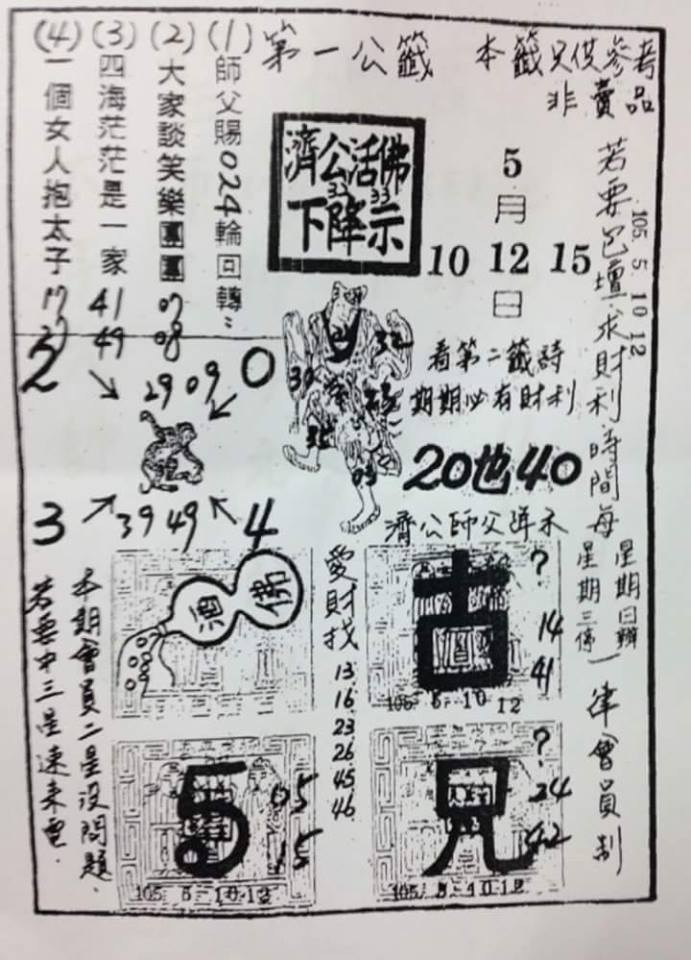 第一公籤
本籤只供參考
非賣品
(1)師父賜024輪回轉
(2)大家談笑樂團團 07 08
(3)四海茫茫是一家 41 49
(4)一個女人抱太子 17
濟公活佛
32 33
下降示
5
月
10 12 15
日
若要包壇求財利時間每
星期日辦
星期三停
一律會員制
105 5 10 12
看第二籤詩
期期必有財利
20也40
濟公師父降示
2
0
29 09
39 49
3
4
酒
佛
愛財找
13
16
23
26
45
46
古
?
14
41
105 5 10 12
5
05
15
105 5 10 12
兄
?
24
42
105 5 10 12
本期會員二星沒問題
若要中三星速來電